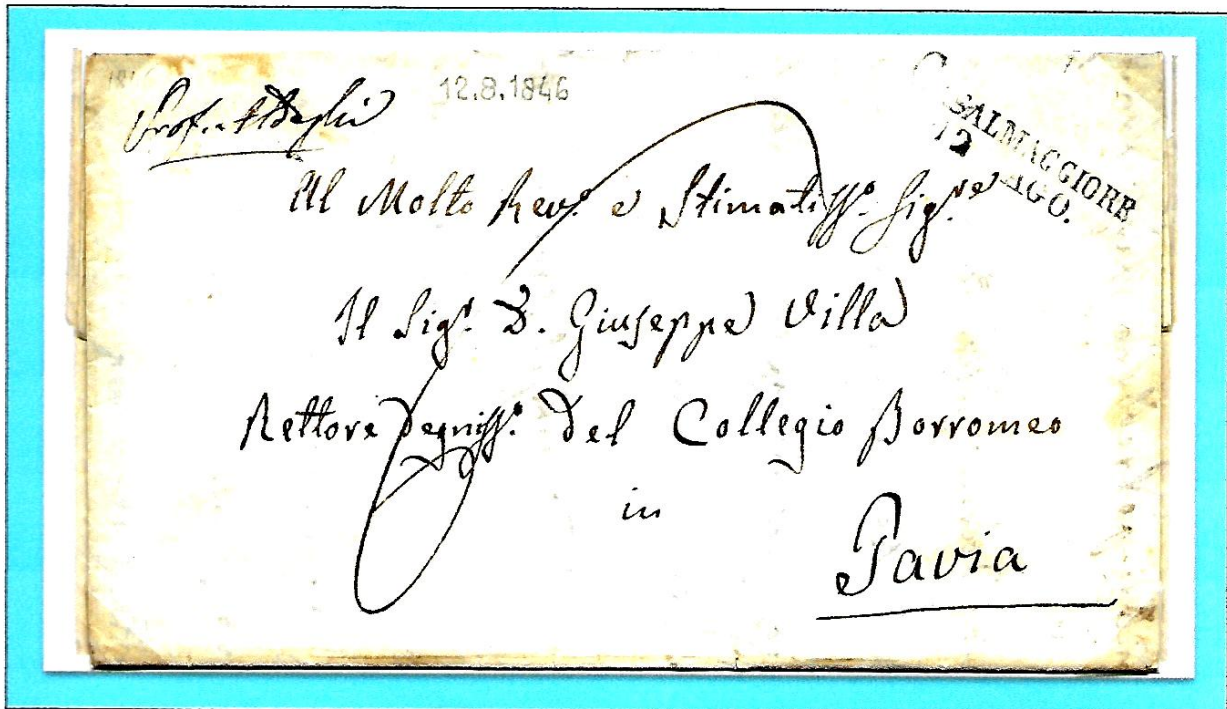 12.8.1846
CASALMAGGIORE
12 AGO.
Al Molto Rev.o e Stimatiss.o Sig.re
Il Sig.r D. Giuseppe Villa
Rettore Degniss.o del Collegio Borromeo
in
Pavia